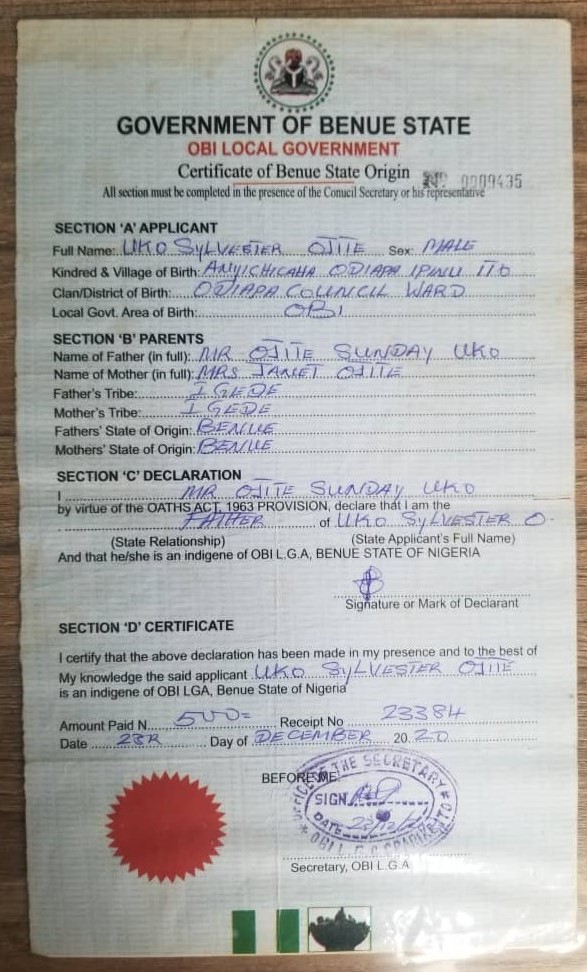 GOVERNMENT OF BENUE STATE
OBI LOCAL GOVERNMENT
Certificate of Benue State Origin
Nº 0009435
All section must be completed in the presence of the Conucil Secretary or his representative
SECTION 'A' APPLICANT
Full Name: UKO SYLVESTER OJIIE Sex: MALE
Kindred & Village of Birth: ANYICHICAHA ODIAPA IPINU ITO
Clan/District of Birth: ODIAPA COUNCIL WARD
Local Govt. Area of Birth: OBI
SECTION 'B' PARENTS
Name of Father (in full): MR OJIIE SUNDAY UKO
Name of Mother (in full): MRS JANET OJIIE
Father's Tribe: IGEDE
Mother's Tribe: IGEDE
Fathers' State of Origin: BENUE
Mothers' State of Origin: BENUE
SECTION 'C' DECLARATION
I MR OJIIE SUNDAY UKO
by virtue of the OATHS ACT, 1963 PROVISION, declare that I am the
FATHER of UKO SYLVESTER O.
(State Relationship) (State Applicant's Full Name)
And that he/she is an indigene of OBI L.G.A, BENUE STATE OF NIGERIA
Signature or Mark of Declarant
SECTION 'D' CERTIFICATE
I certify that the above declaration has been made in my presence and to the best of
My knowledge the said applicant UKO SYLVESTER OJIIE
is an indigene of OBI LGA, Benue State of Nigeria
Amount Paid N 500= Receipt No 23384
Date 23R Day of DECEMBER 20 20
BEFORE ME
OFFICE OF THE SECRETARY
SIGN
DATE 23/12/
OBI L.G.
Secretary, OBI L.G.A